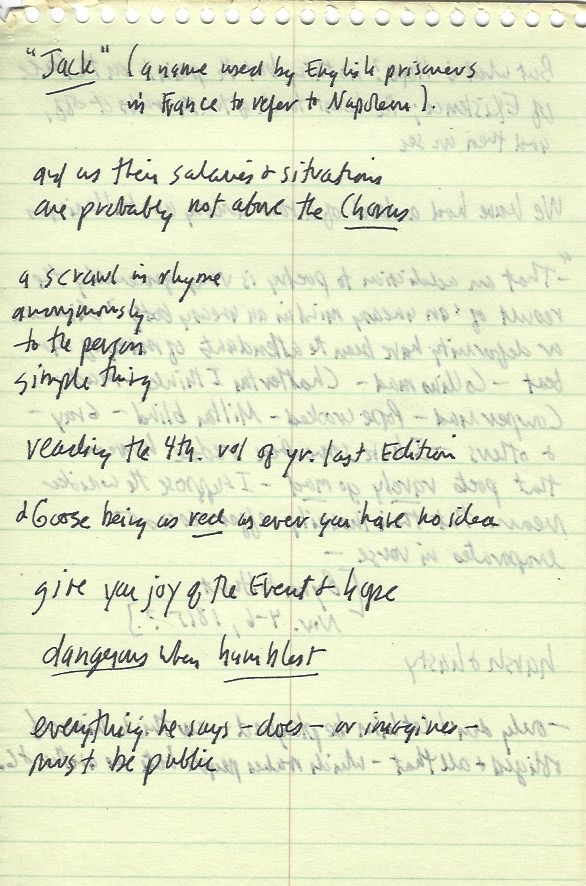 "Jack" (a name used by English prisoners
in France to refer to Napoleon).
and as their salaries & situations
are probably not above the Chorus
a scrawl in rhyme
anonymously
to the person
simple thing
reading the 4th. vol of yr. last Edition
& Goose being as red as ever you have no idea
give you joy of the Event & hope
dangerous when humblest
everything he says – does – or imagines –
must be public